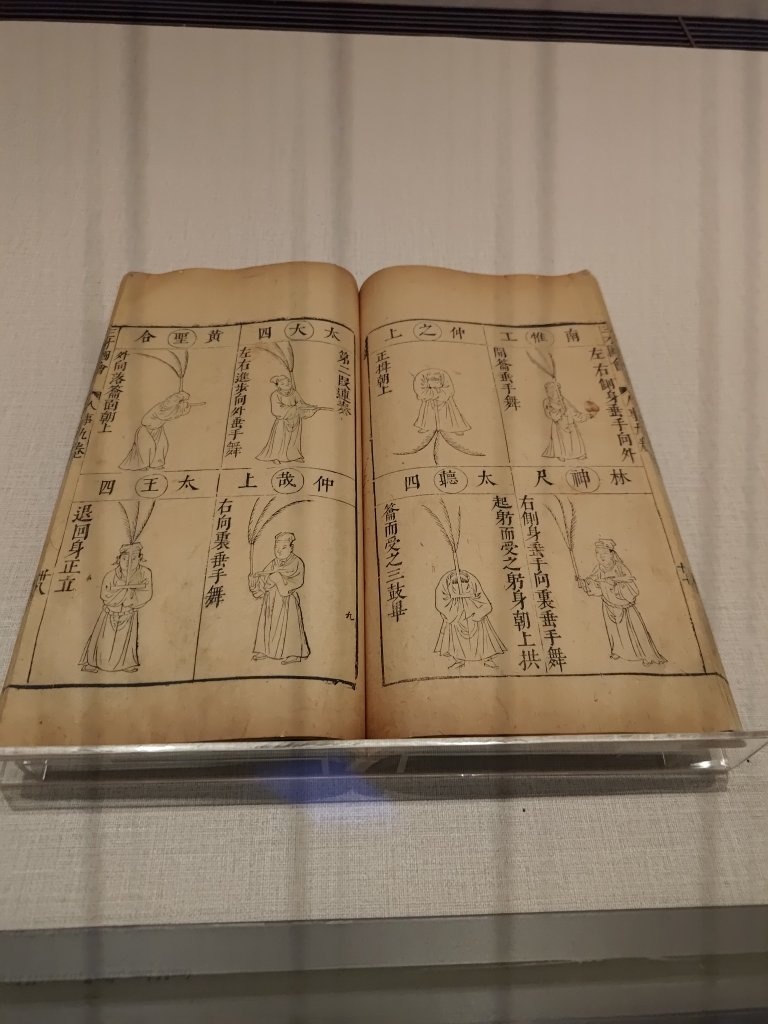 三才圖會
南 惟 工
左右側身垂手向外
開籥垂手舞
仲 之 上
正 朝上
林 神 尺
右側身垂手向裏垂手舞
起躬而受之躬身朝上拱
太 聽 四
籥而受之三鼓畢
太 大 四
第二段
左右進步向外垂手舞
黃 聖 合
外向落籥面朝上
仲 哉 上
右向裏垂手舞
太 王 四
退回身正立
九
三才圖會
人事九卷
廿八